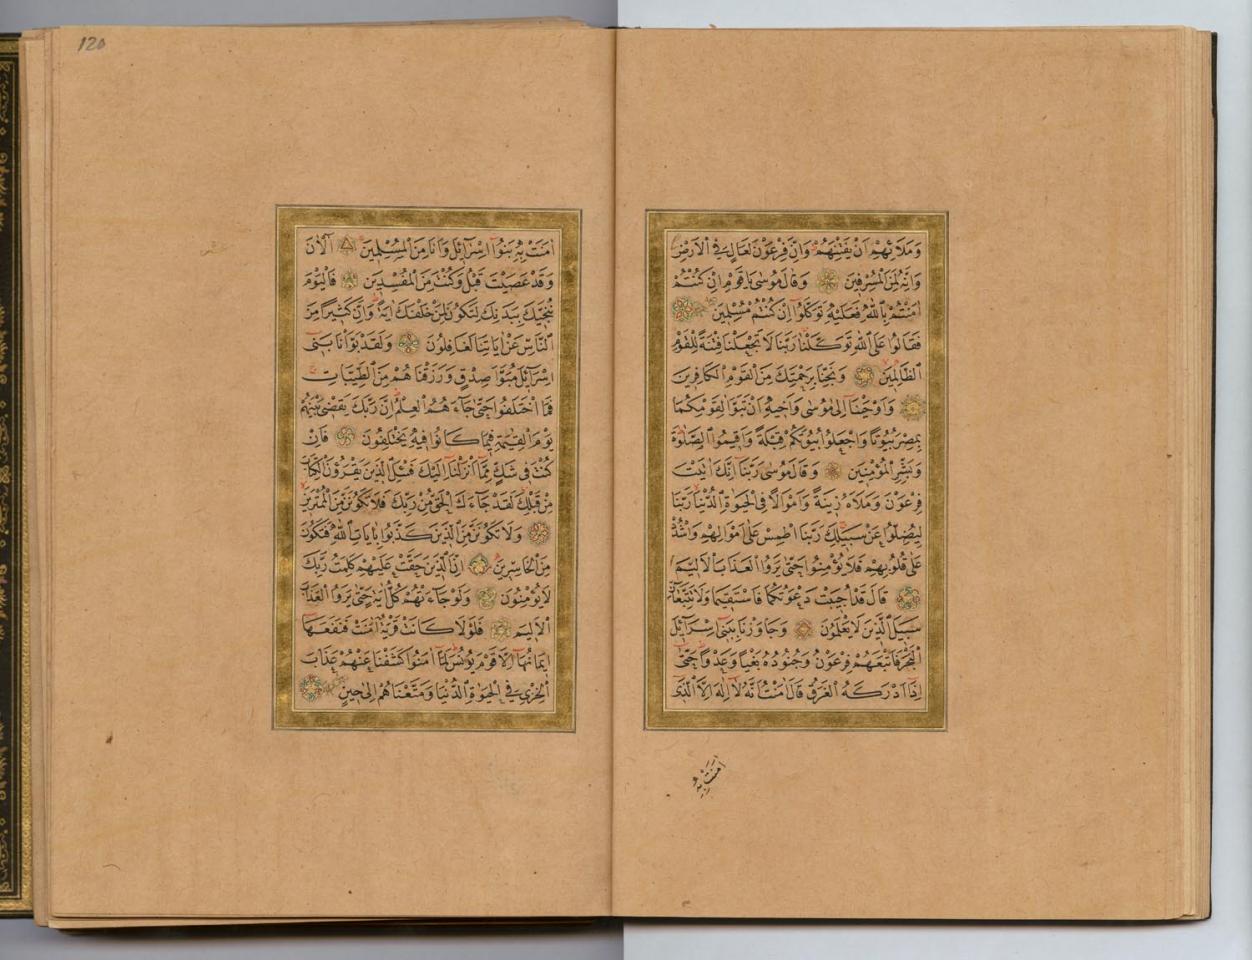 وَمَلَائِهِمْ اَنْ يَفْتِنَهُمْ وَاِنَّ فِرْعَوْنَ لَعَالٍ فِي الْاَرْضِ
وَاِنَّهُ لَمِنَ الْمُسْرِفِينَ وَقَالَ مُوسٰى يَا قَوْمِ اِنْ كُنْتُمْ
اٰمَنْتُمْ بِاللّٰهِ فَعَلَيْهِ تَوَكَّلُوا اِنْ كُنْتُمْ مُسْلِمِينَ
فَقَالُوا عَلَى اللّٰهِ تَوَكَّلْنَا رَبَّنَا لَا تَجْعَلْنَا فِتْنَةً لِلْقَوْمِ
الظَّالِمِينَ وَنَجِّنَا بِرَحْمَتِكَ مِنَ الْقَوْمِ الْكَافِرِينَ
وَاَوْحَيْنَا اِلٰى مُوسٰى وَاَخِيهِ اَنْ تَبَوَّاٰ لِقَوْمِكُمَا
بِمِصْرَ بُيُوتًا وَاجْعَلُوا بُيُوتَكُمْ قِبْلَةً وَاَقِيمُوا الصَّلٰوةَ
وَبَشِّرِ الْمُؤْمِنِينَ وَقَالَ مُوسٰى رَبَّنَا اِنَّكَ اٰتَيْتَ
فِرْعَوْنَ وَمَلَاَهُ زِينَةً وَاَمْوَالًا فِي الْحَيٰوةِ الدُّنْيَا رَبَّنَا
لِيُضِلُّوا عَنْ سَبِيلِكَ رَبَّنَا اطْمِسْ عَلٰى اَمْوَالِهِمْ وَاشْدُدْ
عَلٰى قُلُوبِهِمْ فَلَا يُؤْمِنُوا حَتّٰى يَرَوُا الْعَذَابَ الْاَلِيمَ
قَالَ قَدْ اُجِيبَتْ دَعْوَتُكُمَا فَاسْتَقِيمَا وَلَا تَتَّبِعَانِّ
سَبِيلَ الَّذِينَ لَا يَعْلَمُونَ وَجَاوَزْنَا بِبَنِي اِسْرَائِلَ
الْبَحْرَ فَاَتْبَعَهُمْ فِرْعَوْنُ وَجُنُودُهُ بَغْيًا وَعَدْوًا حَتّٰى
اِذَا اَدْرَكَهُ الْغَرَقُ قَالَ اٰمَنْتُ اَنَّهُ لَا اِلٰهَ اِلَّا الَّذِي
اٰمَنَتْ بِهِ
120
اٰمَنَتْ بِهِ بَنُوا اِسْرَائِلَ وَاَنَا مِنَ الْمُسْلِمِينَ آلْاٰنَ
وَقَدْ عَصَيْتَ قَبْلُ وَكُنْتَ مِنَ الْمُفْسِدِينَ فَالْيَوْمَ
نُنَجِّيكَ بِبَدَنِكَ لِتَكُونَ لِمَنْ خَلْفَكَ اٰيَةً وَاِنَّ كَثِيرًا مِنَ
النَّاسِ عَنْ اٰيَاتِنَا لَغَافِلُونَ وَلَقَدْ بَوَّاْنَا بَنِي
اِسْرَائِلَ مُبَوَّاَ صِدْقٍ وَرَزَقْنَاهُمْ مِنَ الطَّيِّبَاتِ
فَمَا اخْتَلَفُوا حَتّٰى جَاءَهُمُ الْعِلْمُ اِنَّ رَبَّكَ يَقْضِي بَيْنَهُمْ
يَوْمَ الْقِيٰمَةِ فِيمَا كَانُوا فِيهِ يَخْتَلِفُونَ فَاِنْ
كُنْتَ فِي شَكٍّ مِمَّا اَنْزَلْنَا اِلَيْكَ فَسْئَلِ الَّذِينَ يَقْرَؤُنَ الْكِتَابَ
مِنْ قَبْلِكَ لَقَدْ جَاءَكَ الْحَقُّ مِنْ رَبِّكَ فَلَا تَكُونَنَّ مِنَ الْمُمْتَرِينَ
وَلَا تَكُونَنَّ مِنَ الَّذِينَ كَذَّبُوا بِاٰيَاتِ اللّٰهِ فَتَكُونَ
مِنَ الْخَاسِرِينَ اِنَّ الَّذِينَ حَقَّتْ عَلَيْهِمْ كَلِمَتُ رَبِّكَ
لَا يُؤْمِنُونَ وَلَوْ جَاءَتْهُمْ كُلُّ اٰيَةٍ حَتّٰى يَرَوُا الْعَذَابَ
الْاَلِيمَ فَلَوْلَا كَانَتْ قَرْيَةٌ اٰمَنَتْ فَنَفَعَهَا
اِيمَانُهَا اِلَّا قَوْمَ يُونُسَ لَمَّا اٰمَنُوا كَشَفْنَا عَنْهُمْ عَذَابَ
الْخِزْيِ فِي الْحَيٰوةِ الدُّنْيَا وَمَتَّعْنَاهُمْ اِلٰى حِينٍ